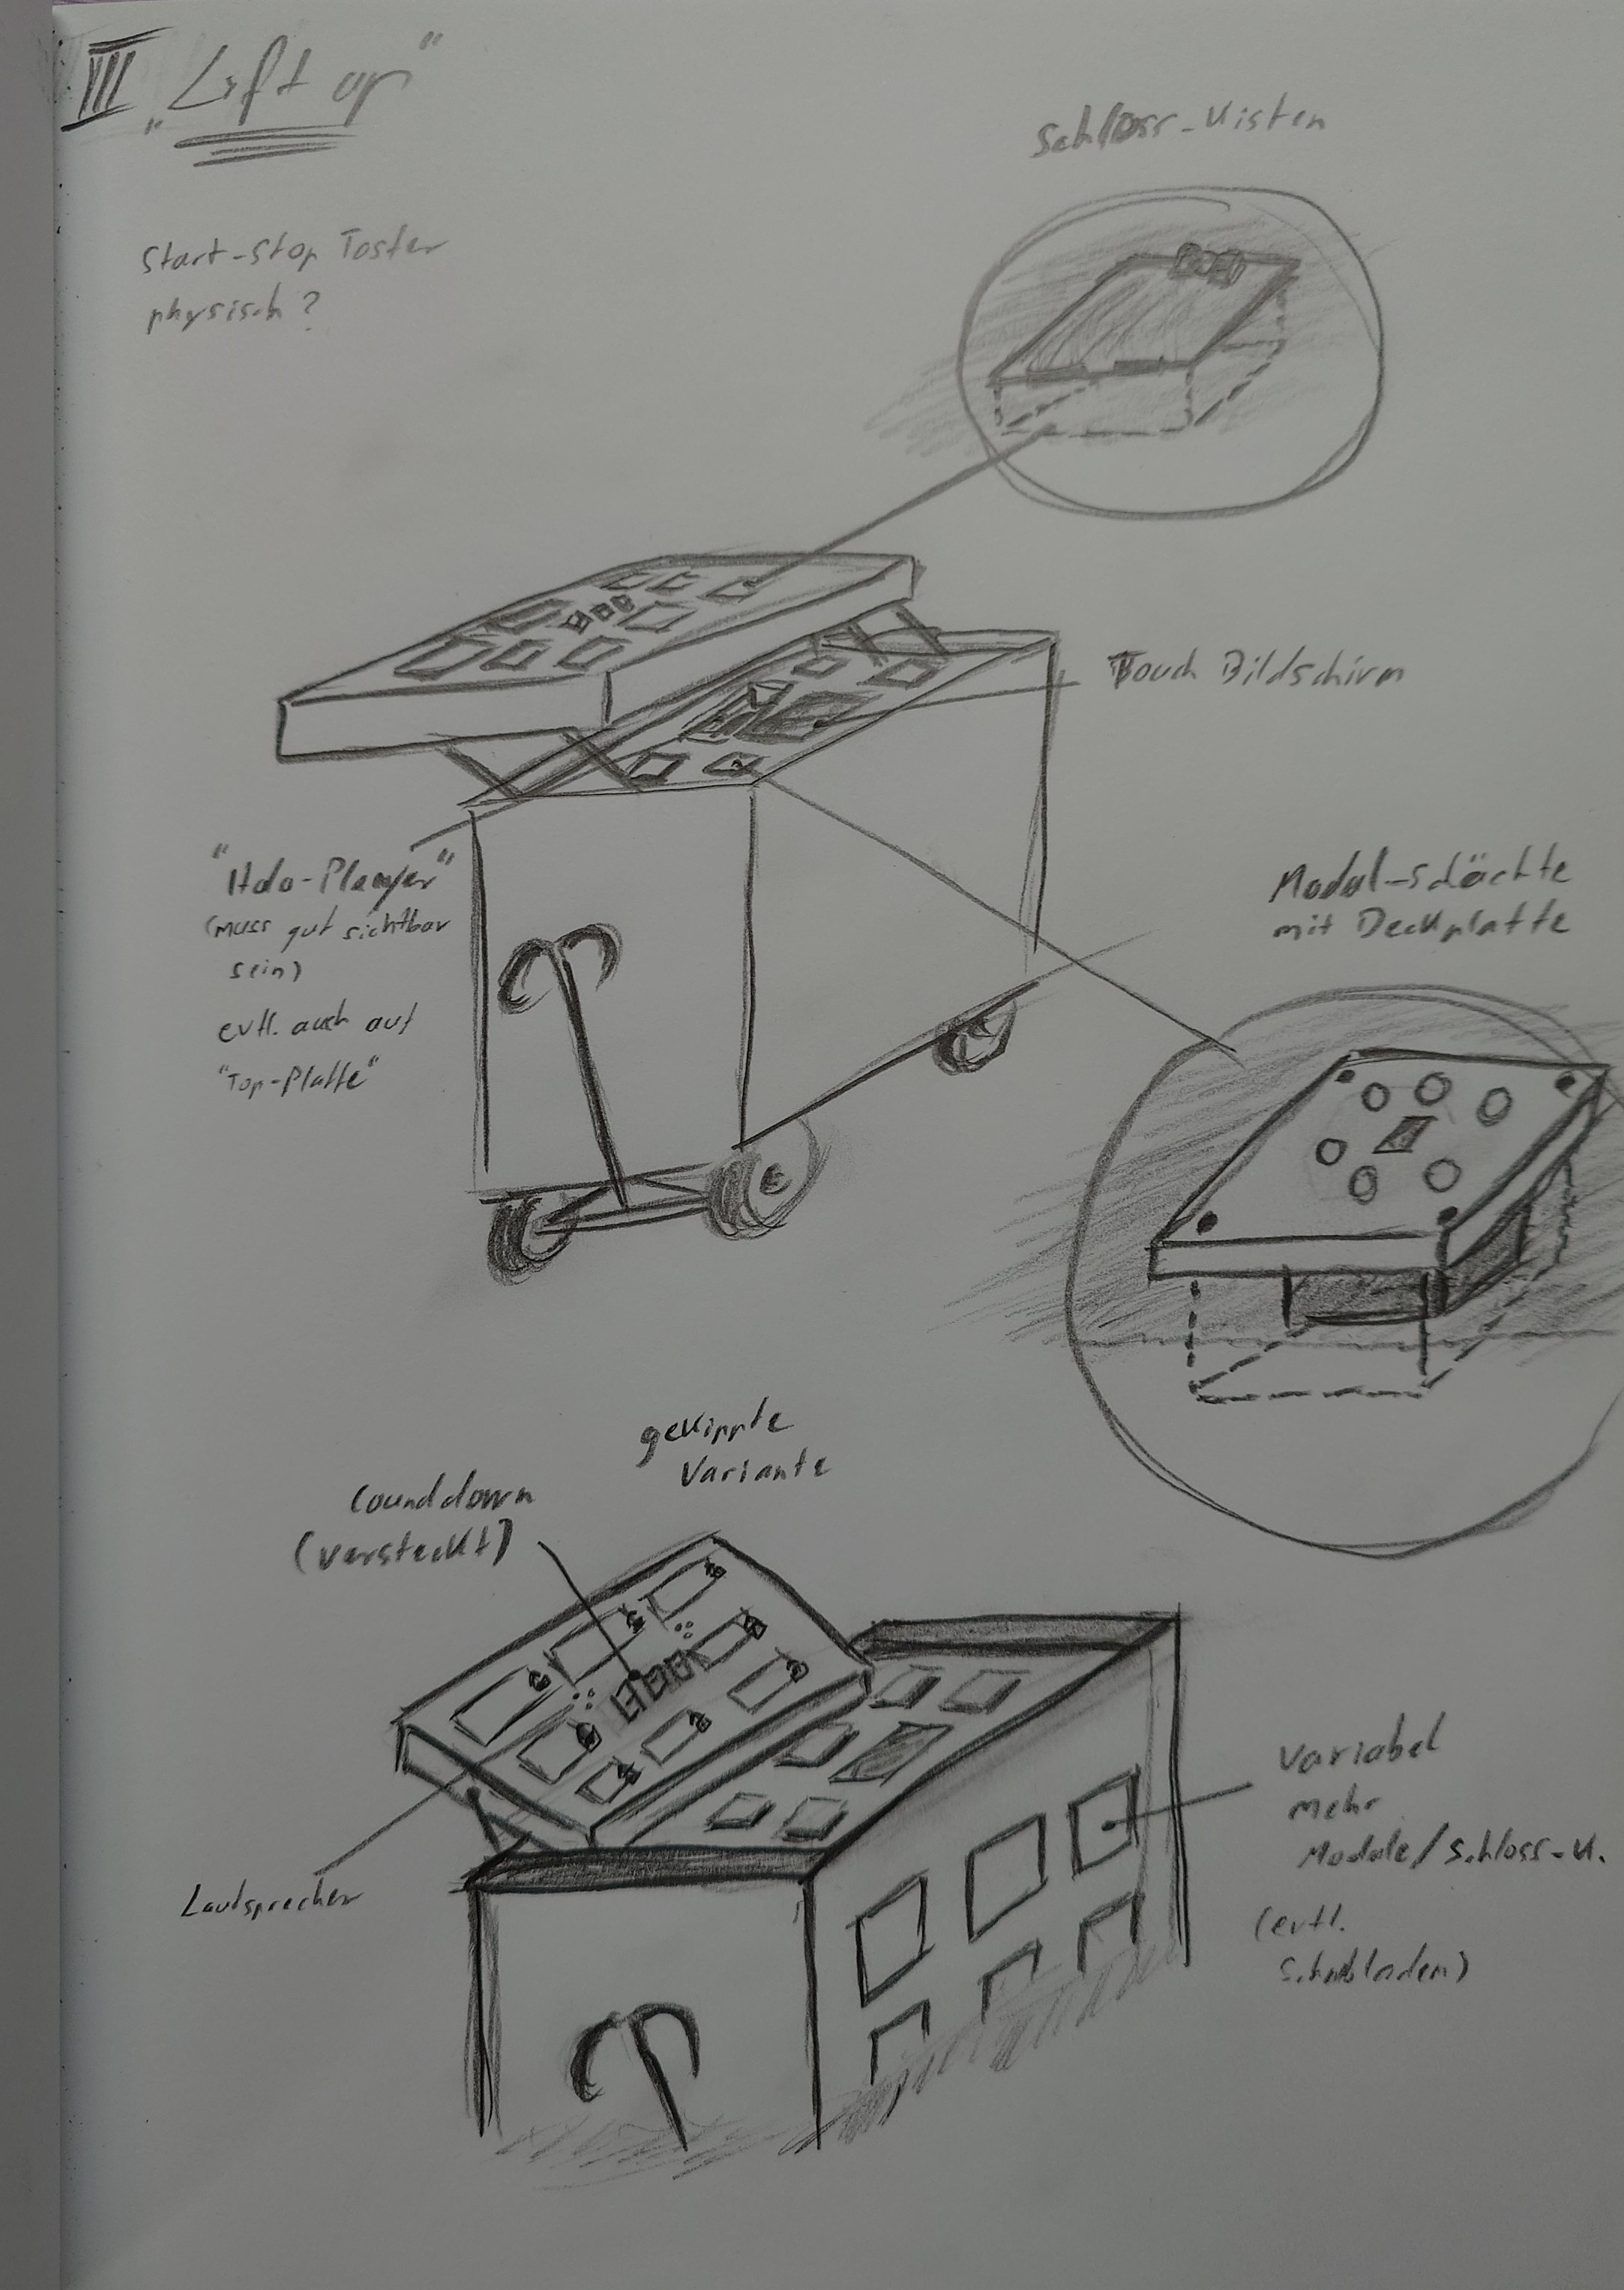 III „Lift up"
Schloss-Kisten
Start-Stop Taster
physisch?
Touch Bildschirm
"Holo-Player"
(muss gut sichtbar
sein)
evtl. auch auf
"Top-Platte"
Modul-Schächte
mit Deckplatte
gekippte
Variante
Counddown
(versteckt)
Variabel
mehr
Module/Schloss-K.
(evtl.
Schubladen)
Lautsprecher